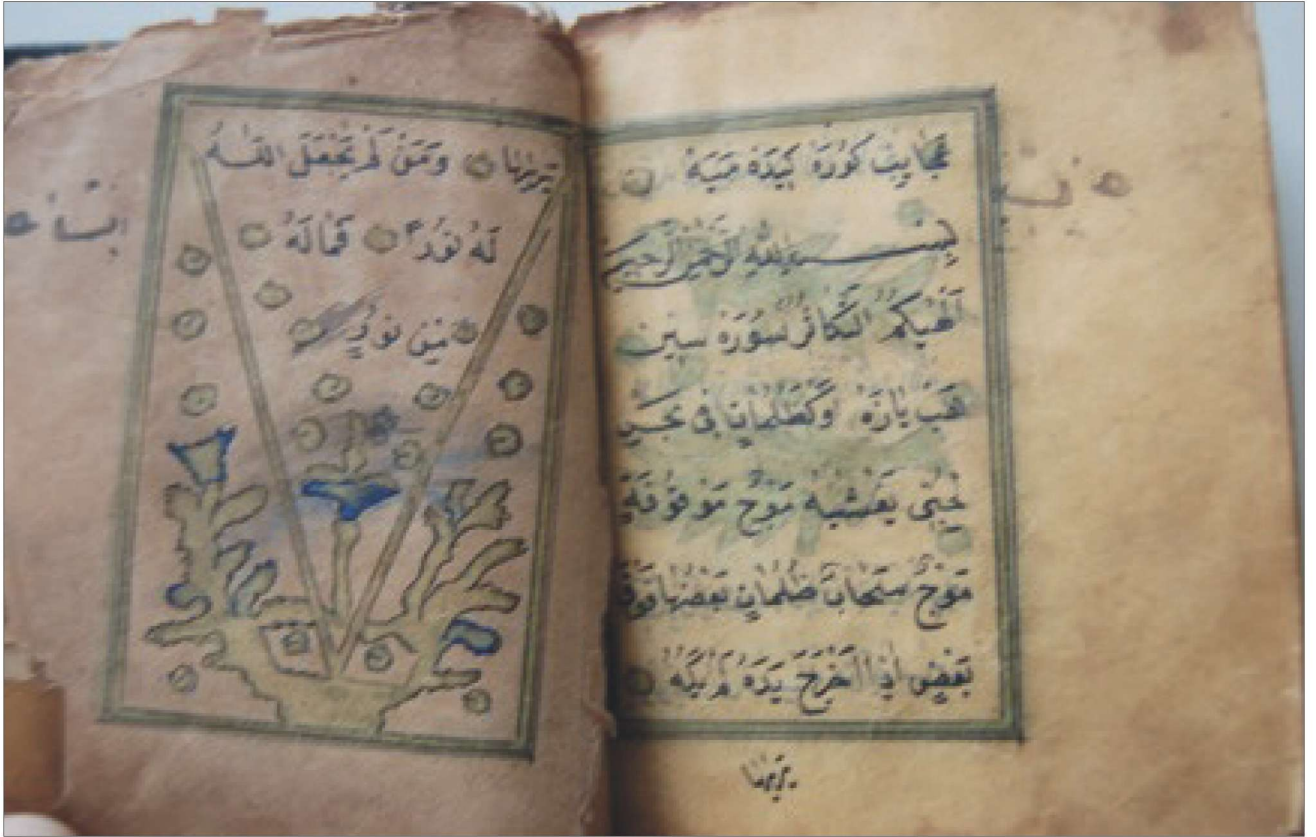 عجايب كوره كيده ميه
بِسْــمِ اللهِ الرَّحْمٰنِ الرَّحِيمِ
اَلْهٰيكُمُ التَّكَاثُرُ سُورَهٔ سنين
هَبْ يازه اَوْكَظُلُمَاتٍ فِى بَحْرٍ
يَغْشٰيهُ مَوْجٌ مَوْفَوْقَهِ
مَوْجٌ سَحَابٌ ظُلُمَاتٍ بَعْضُهَا فَوْقَ
بَعْضٍ اِذَا اَخْرَجَ يَدَهُ لَمْ يَكَهُ
يَرٰيهَا
يَرٰيهَا وَمَنْ لَمْ يَجْعَلَ اللهُ
لَهُ نُورًا فَمَا لَهُ
مِنْ نُورٍ